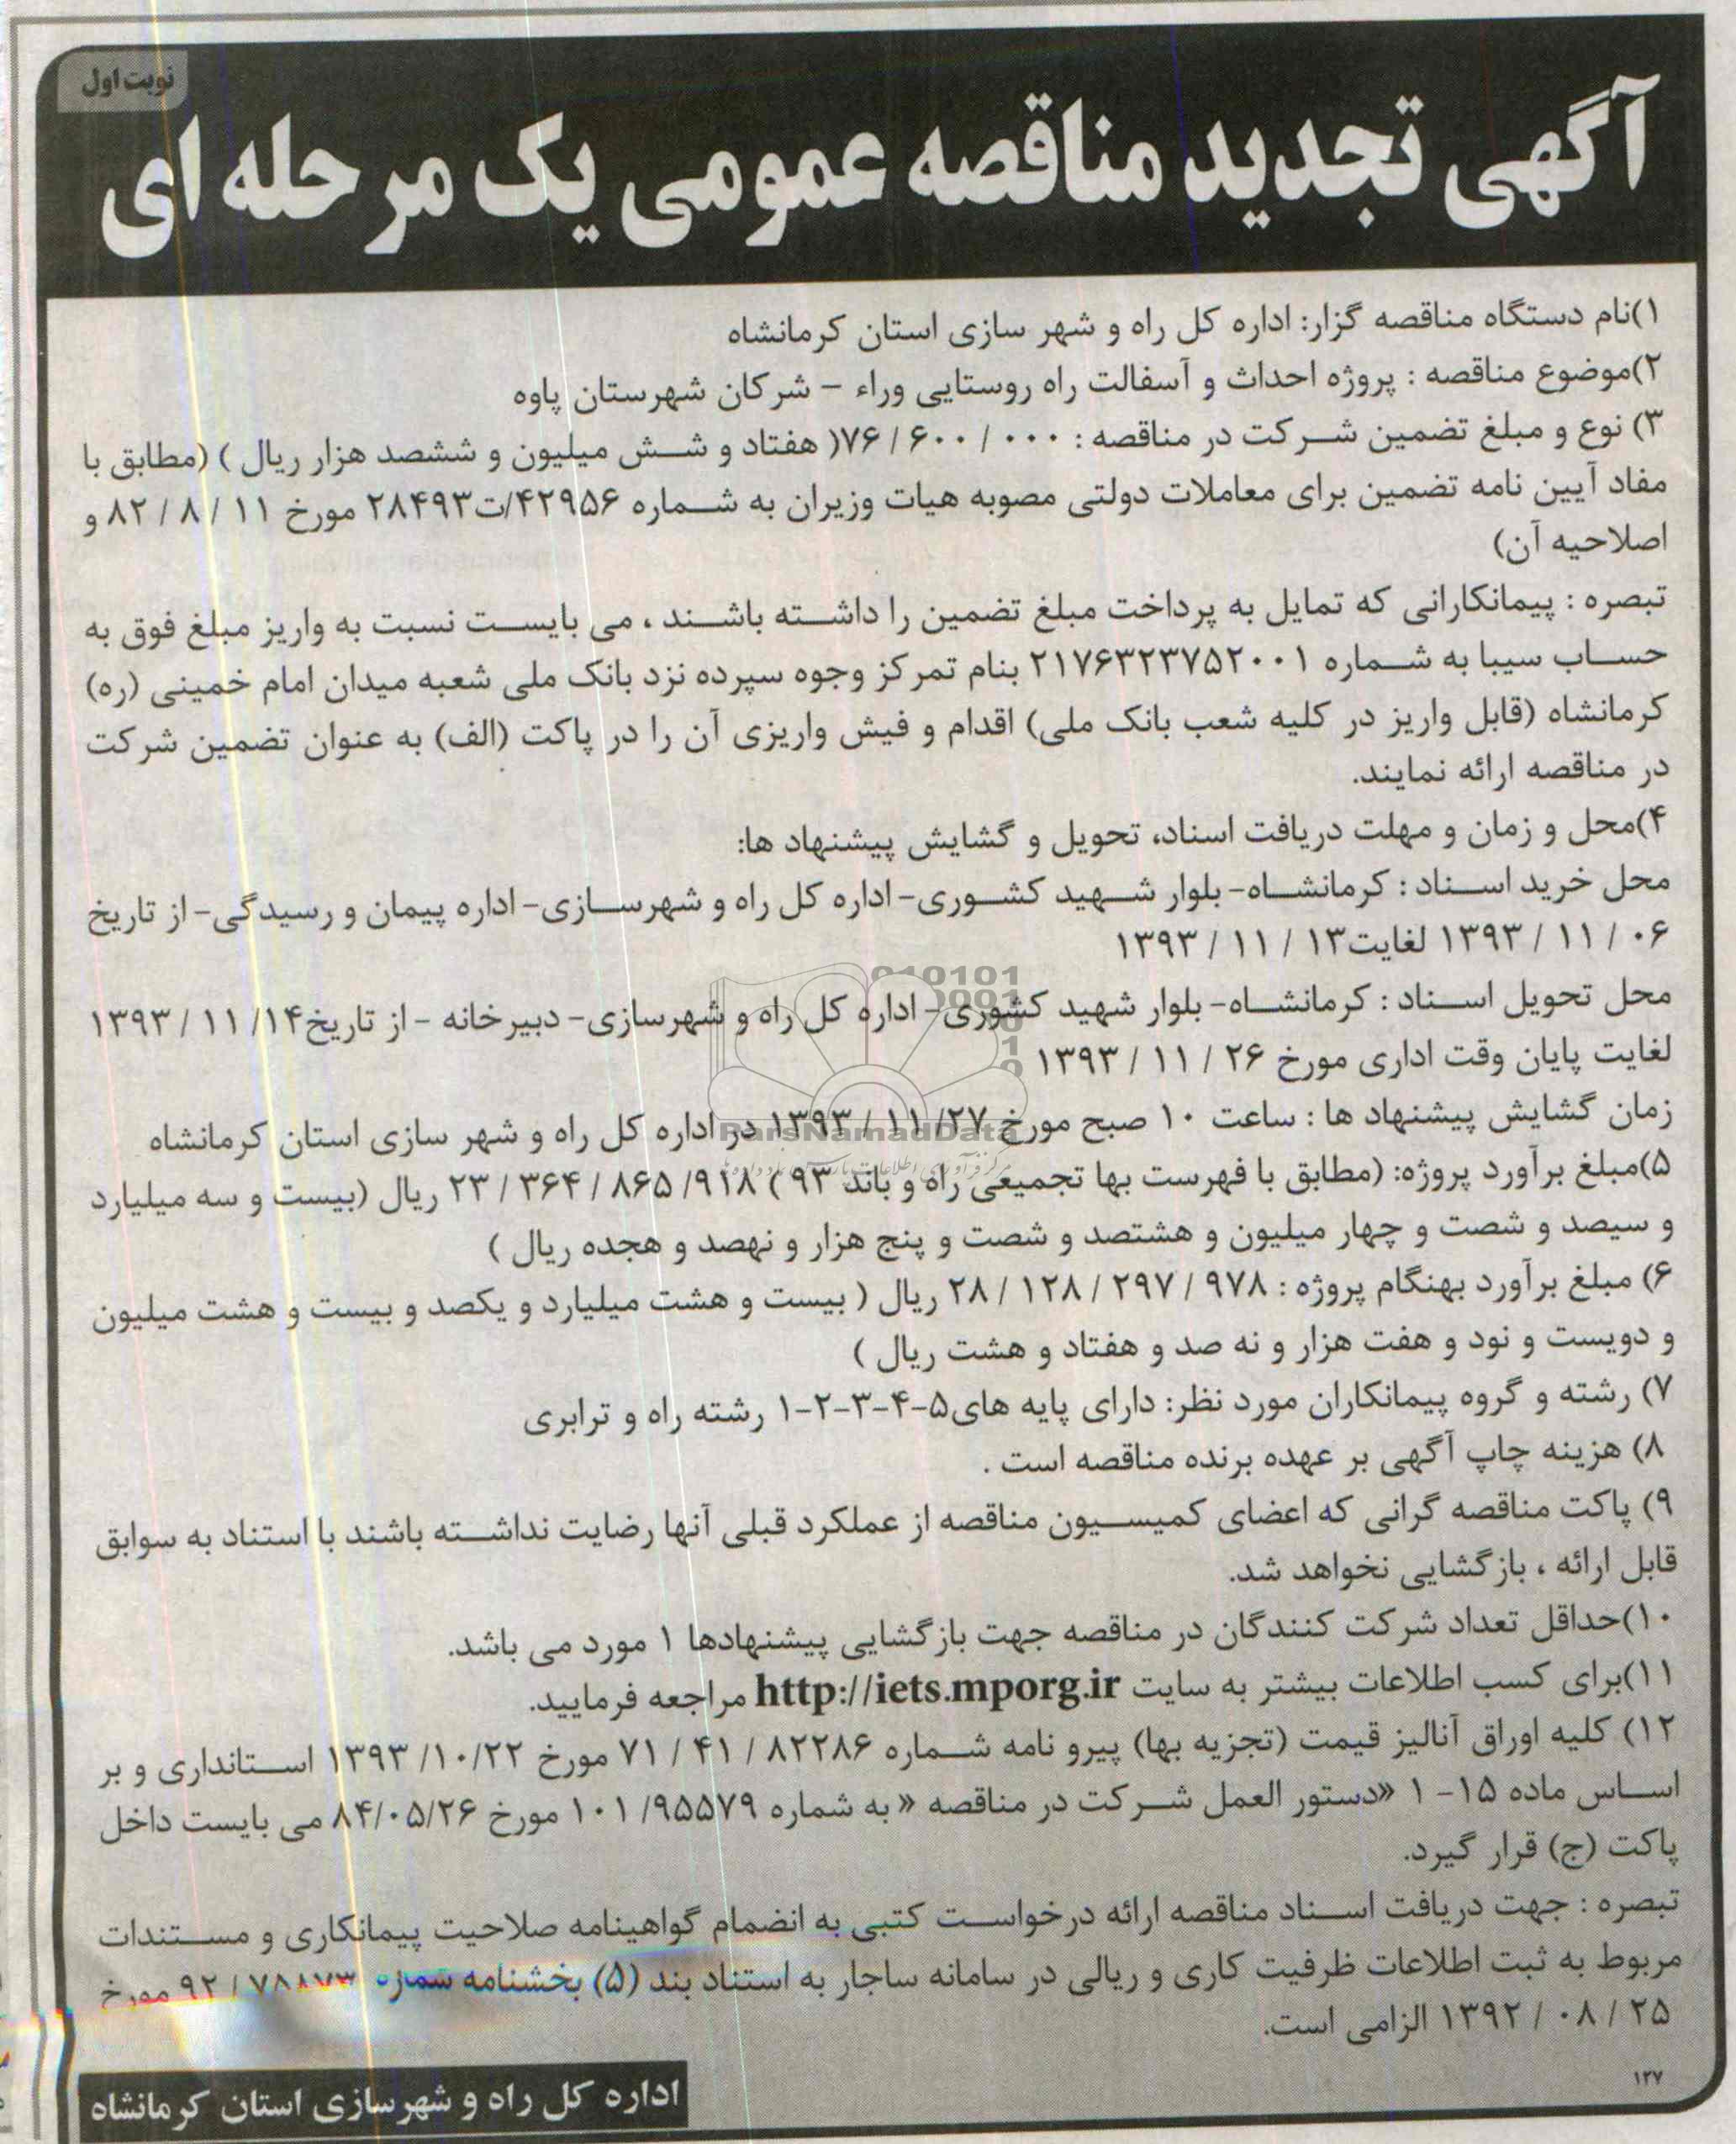 نوبت اول
آگهی تجدید مناقصه عمومی یک مرحله ای
۱)نام دستگاه مناقصه گزار: اداره کل راه و شهر سازی استان کرمانشاه
۲)موضوع مناقصه : پروژه احداث و آسفالت راه روستایی وراء – شرکان شهرستان پاوه
۳) نوع و مبلغ تضمین شرکت در مناقصه : ۰۰۰ / ۶۰۰ / ۷۶( هفتاد و شش میلیون و ششصد هزار ریال ) (مطابق با
مفاد آیین نامه تضمین برای معاملات دولتی مصوبه هیات وزیران به شماره ۴۲۹۵۶/ت۲۸۴۹۳ مورخ ۱۱ / ۸ / ۸۲ و
اصلاحیه آن)
تبصره : پیمانکارانی که تمایل به پرداخت مبلغ تضمین را داشته باشند ، می بایست نسبت به واریز مبلغ فوق به
حساب سیبا به شماره ۲۱۷۶۳۲۳۷۵۲۰۰۱ بنام تمرکز وجوه سپرده نزد بانک ملی شعبه میدان امام خمینی (ره)
کرمانشاه (قابل واریز در کلیه شعب بانک ملی) اقدام و فیش واریزی آن را در پاکت (الف) به عنوان تضمین شرکت
در مناقصه ارائه نمایند.
۴)محل و زمان و مهلت دریافت اسناد، تحویل و گشایش پیشنهاد ها:
محل خرید اسناد : کرمانشاه- بلوار شهید کشوری- اداره کل راه و شهرسازی- اداره پیمان و رسیدگی- از تاریخ
۰۶ / ۱۱ / ۱۳۹۳ لغایت۱۳ / ۱۱ / ۱۳۹۳
محل تحویل اسناد : کرمانشاه- بلوار شهید کشوری- اداره کل راه و شهرسازی- دبیرخانه - از تاریخ۱۴/ ۱۱ / ۱۳۹۳
لغایت پایان وقت اداری مورخ ۲۶ / ۱۱ / ۱۳۹۳
زمان گشایش پیشنهاد ها : ساعت ۱۰ صبح مورخ ۲۷/ ۱۱ / ۱۳۹۳ در اداره کل راه و شهر سازی استان کرمانشاه
ParsNamadData
۵)مبلغ برآورد پروژه: (مطابق با فهرست بها تجمیعی راه و باند ۹۳ ) ۹۱۸/ ۸۶۵ / ۳۶۴ / ۲۳ ریال (بیست و سه میلیارد
و سیصد و شصت و چهار میلیون و هشتصد و شصت و پنج هزار و نهصد و هجده ریال )
۶) مبلغ برآورد بهنگام پروژه : ۹۷۸ / ۲۹۷ / ۱۲۸ / ۲۸ ریال ( بیست و هشت میلیارد و یکصد و بیست و هشت میلیون
و دویست و نود و هفت هزار و نه صد و هفتاد و هشت ریال )
۷) رشته و گروه پیمانکاران مورد نظر: دارای پایه های۵-۴-۳-۲-۱ رشته راه و ترابری
۸) هزینه چاپ آگهی بر عهده برنده مناقصه است .
۹) پاکت مناقصه گرانی که اعضای کمیسیون مناقصه از عملکرد قبلی آنها رضایت نداشته باشند با استناد به سوابق
قابل ارائه ، بازگشایی نخواهد شد.
۱۰)حداقل تعداد شرکت کنندگان در مناقصه جهت بازگشایی پیشنهادها ۱ مورد می باشد.
۱۱)برای کسب اطلاعات بیشتر به سایت http://iets.mporg.ir مراجعه فرمایید.
۱۲) کلیه اوراق آنالیز قیمت (تجزیه بها) پیرو نامه شماره ۸۲۲۸۶ / ۴۱ / ۷۱ مورخ ۱۰/۲۲/ ۱۳۹۳ استانداری و بر
اساس ماده ۱۵- ۱ «دستور العمل شرکت در مناقصه « به شماره ۹۵۵۷۹/ ۱۰۱ مورخ ۸۴/۰۵/۲۶ می بایست داخل
پاکت (ج) قرار گیرد.
تبصره : جهت دریافت اسناد مناقصه ارائه درخواست کتبی به انضمام گواهینامه صلاحیت پیمانکاری و مستندات
مربوط به ثبت اطلاعات ظرفیت کاری و ریالی در سامانه ساجار به استناد بند (۵) بخشنامه شماره ۷۸۸۷۳ / ۹۲ مورخ
۲۵ / ۰۸ / ۱۳۹۲ الزامی است.
۱۲۷
اداره کل راه و شهرسازی استان کرمانشاه